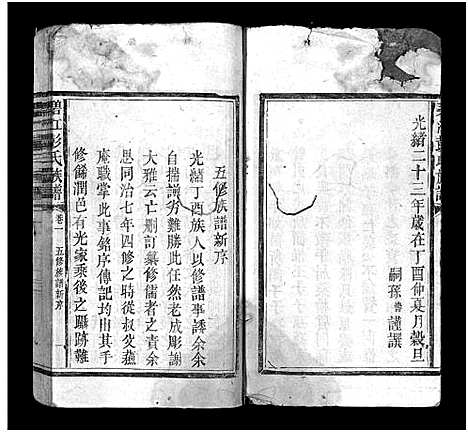 光緒二十三年歲在丁酉仲夏月穀旦
嗣孫 謹譔
五修族譜新序
光緒丁酉族人以修譜事諉余余
自揣譾劣難勝此任然老成彫謝
大雅云亡刪訂纂修儒者之責余
思同治七年四修之時從叔
庵職掌此事銘序傳跋均由其手
修餙潤邑有光家乘後之躡跡難
碧江彭氏族譜
卷一
五修族譜新序